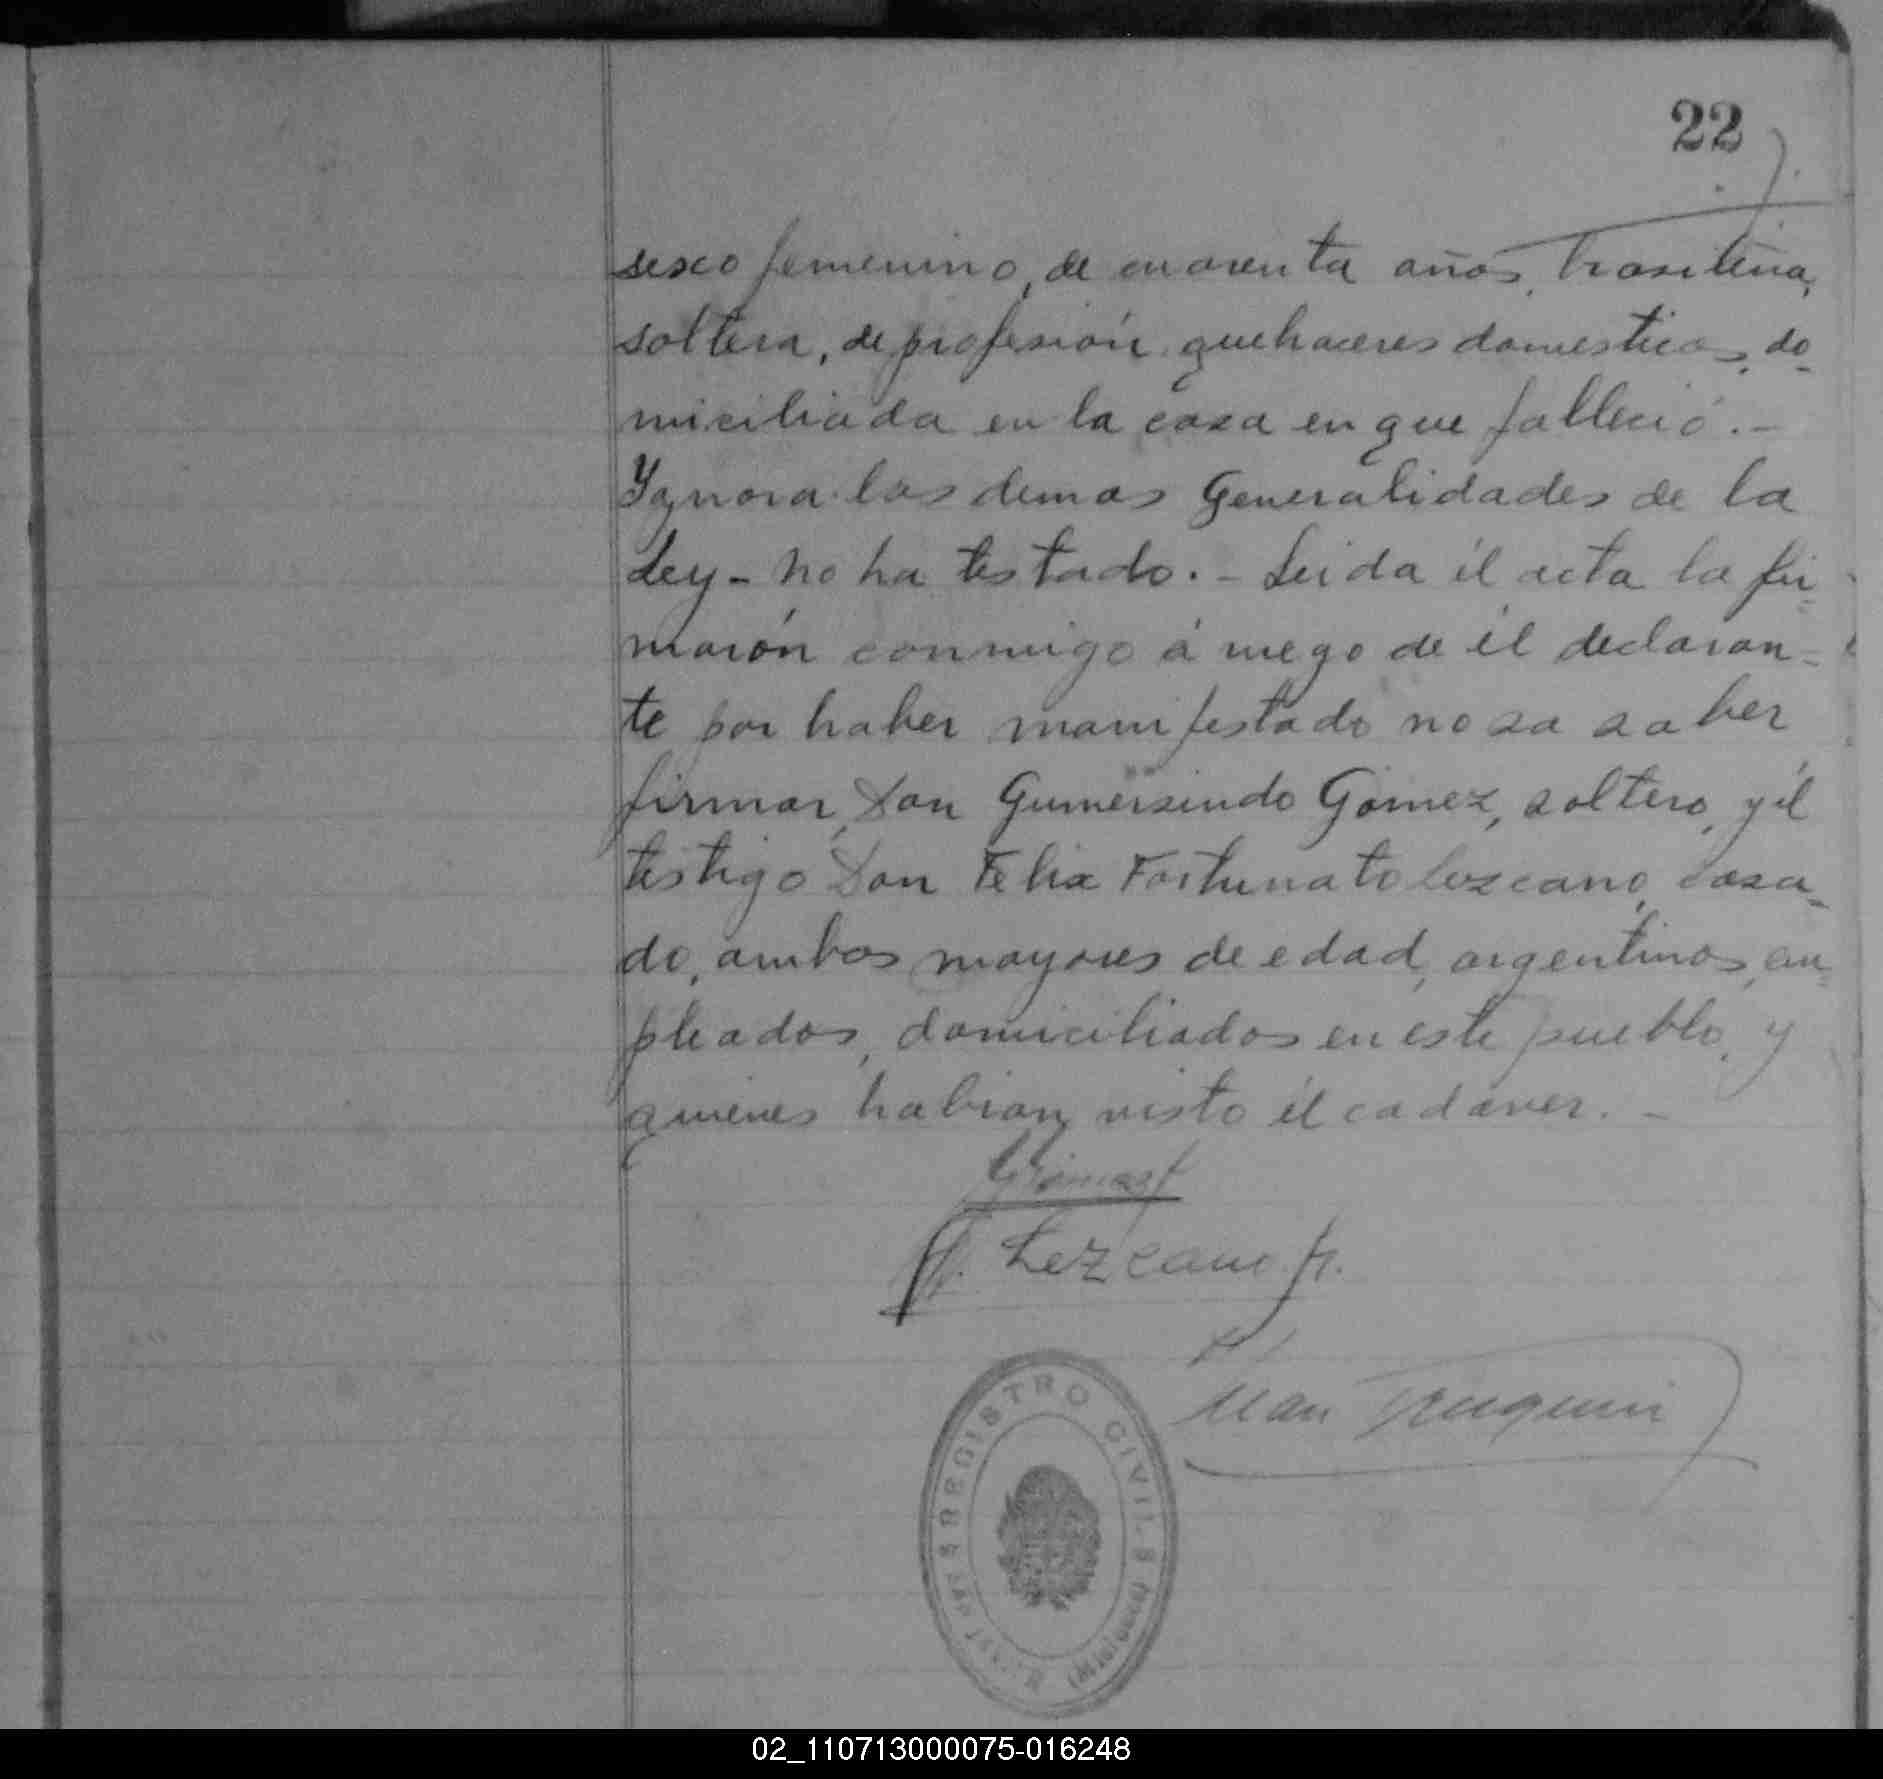 22
sexo femenino, de cuarenta años, brasileña,
soltera, de profesión quehaceres domesticos, do-
miciliada en la casa en que falleció.-
Ygnora las demas Generalidades de la
Ley - no ha testado.- Leida él acta la fir-
marón conmigo á ruego de él declaran-
te por haber manifestado no sa saber
firmar, Don Gumersindo Gómez, soltero, y él
testigo Don Felix Fortunato Lezcano, casa-
do, ambos mayores de edad, argentinos, em-
pleados, domiciliados en este pueblo, y
quienes habian visto él cadáver.-
Lezcano
REGISTRO CIVIL
02_110713000075-016248